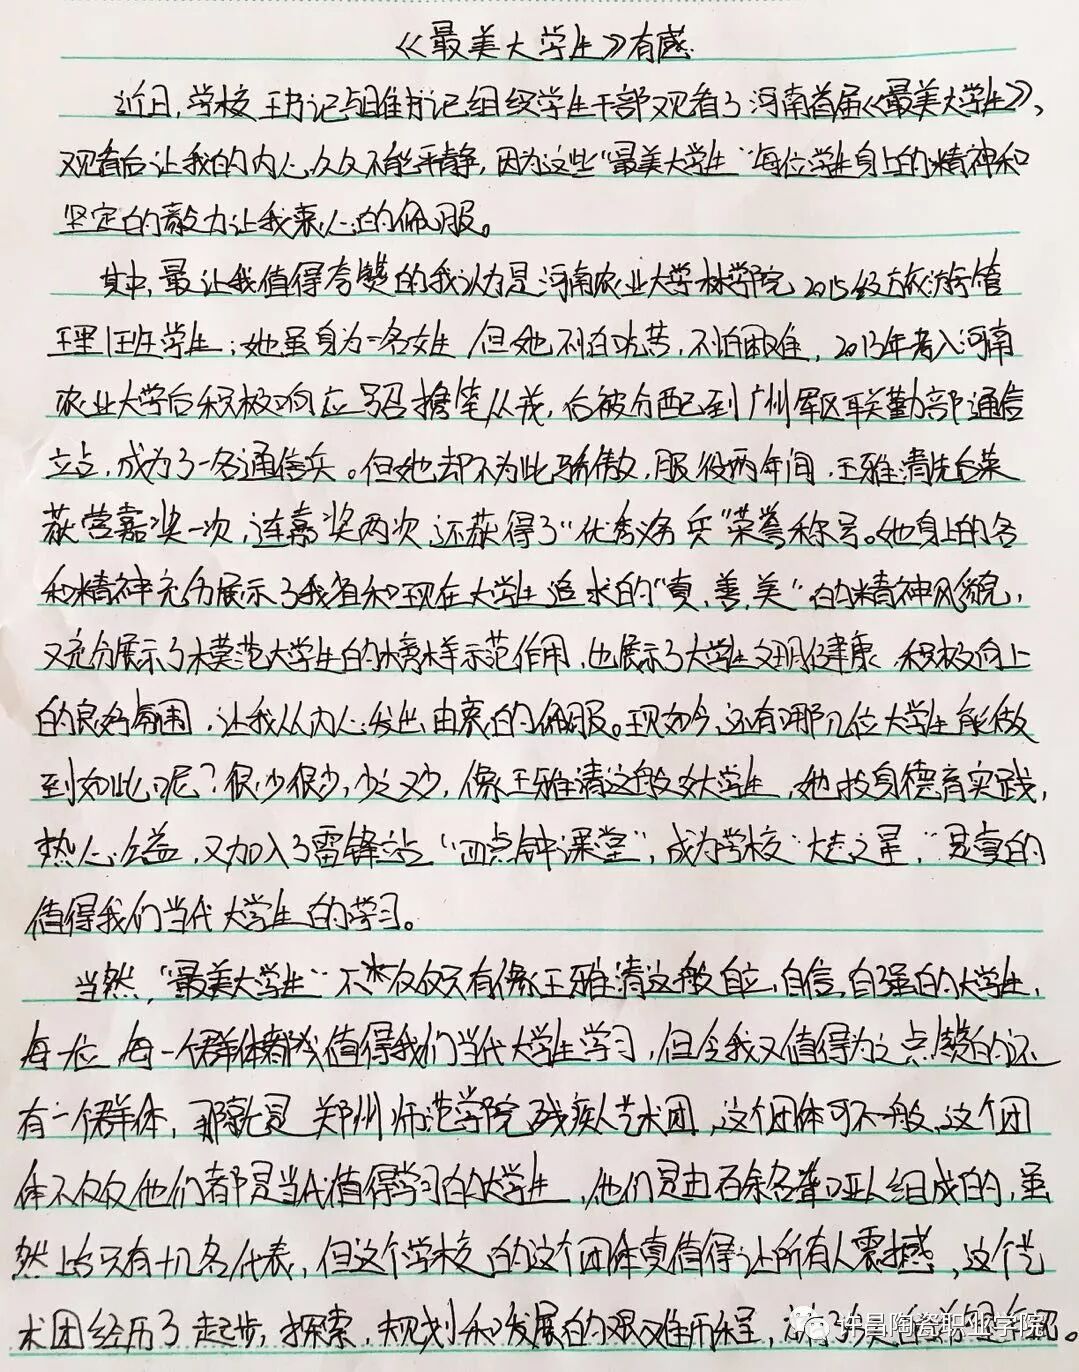 《最美大学生》有感
近日,学校王书记与崔书记组织学生干部观看了河南首届《最美大学生》,
观看后让我的内心久久不能平静,因为这些"最美大学生"每位学生身上的精神和
坚定的毅力让我衷心的佩服。
其中,最让我值得夸赞的我认为是河南农业大学林学院2015级旅游管
理1班学生;她虽身为一名女生,但她不怕吃苦,不怕困难,2013年考入河南
农业大学后积极响应号召携笔从戎,后被分配到广州军区联勤部通信
立占,成为了一名通信兵。但她却不为此骄傲,服役两年间,王雅清先后荣
获营嘉奖一次,连嘉奖两次,还获得了"优秀义务兵"荣誉称号。她身上的各
种精神充分展示了我省和现在大学生追求的"真、善、美"的精神风貌,
又充分展示了模范大学生的榜样示范作用,也展示了大学生文明健康、积极向上
的良好氛围,让我从内心发出由衷的佩服。现如今,还有哪几位大学生能做
到如此呢?很少很少,少之又少,像王雅清这般女大学生,她投身德育实践,
热心公益,又加入了雷锋站"四点钟课堂",成为学校"大志之星",是真的
值得我们当代大学生的学习。
当然,"最美大学生"不仅仅只有像王雅清这般自立、自信、自强的大学生,
每一位,每一个群体都值得我们当代大学生学习,但令我又值得为之点赞的还
有一个群体,那就是郑州师范学院残疾人艺术团,这个团体可不一般,这个团
体不仅仅他们都是当代值得学习的大学生,他们是由百余名聋哑人组成的,虽
然上台只有十几名代表,但这个学校的这个团体真值得让所有人震撼,这个艺
术团经历了起步,探索,规划和发展的艰难历程,
许昌陶瓷职业学院